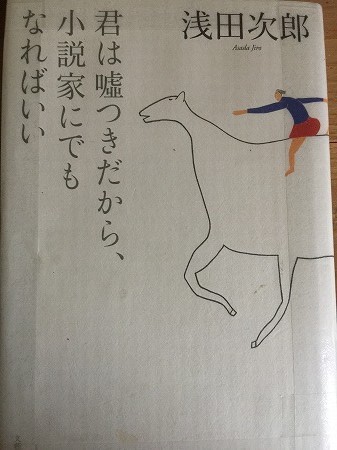 浅田次郎
Asada Jiro
君は嘘つきだから、
小説家にでも
なればいい